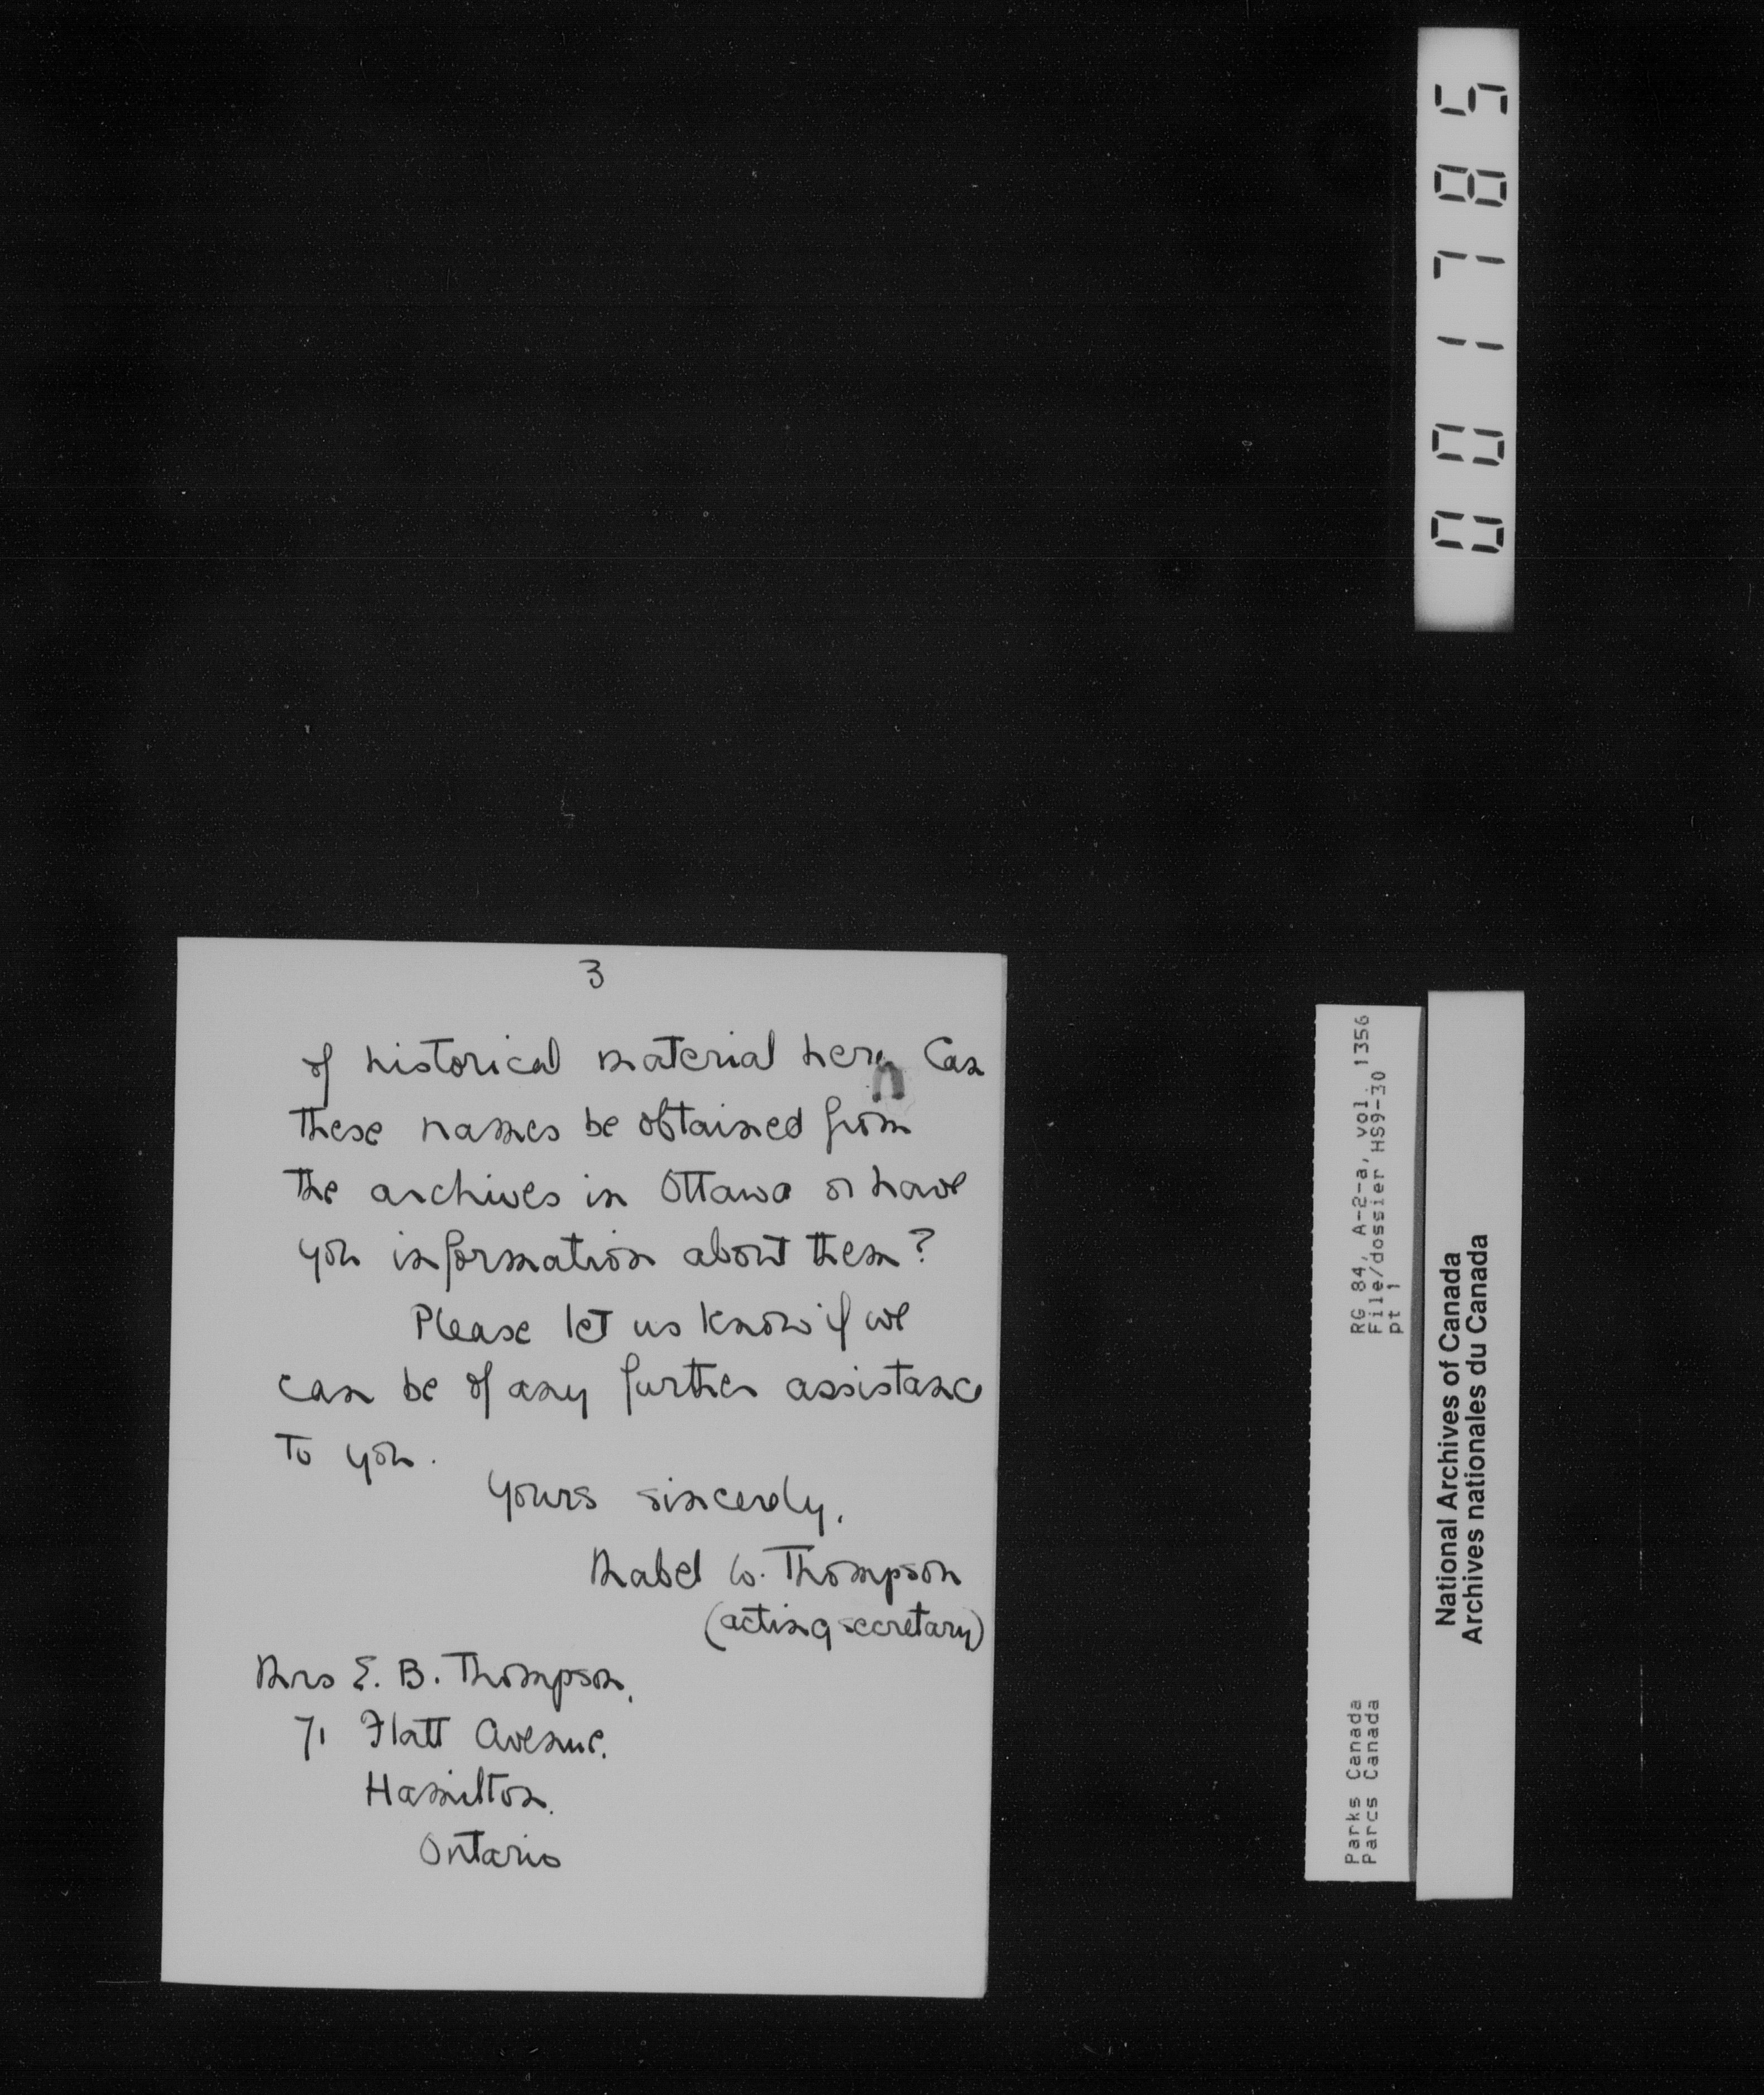 3
of historical material here Can
these names be obtained from
the archives in Ottawa or have
you information about them?
Please let us know if we
can be of any further assistance
to you.
Yours sincerely,
Mabel W. Thompson
(acting secretary)
Mrs E. B. Thompson,
71 Flatt Avenue.
Hamilton.
Ontario
001785
RG 84, A-2-a, vol. 1356
File/dossier HS9-30
pt 1
Parks Canada
Parcs Canada
National Archives of Canada
Archives nationales du Canada